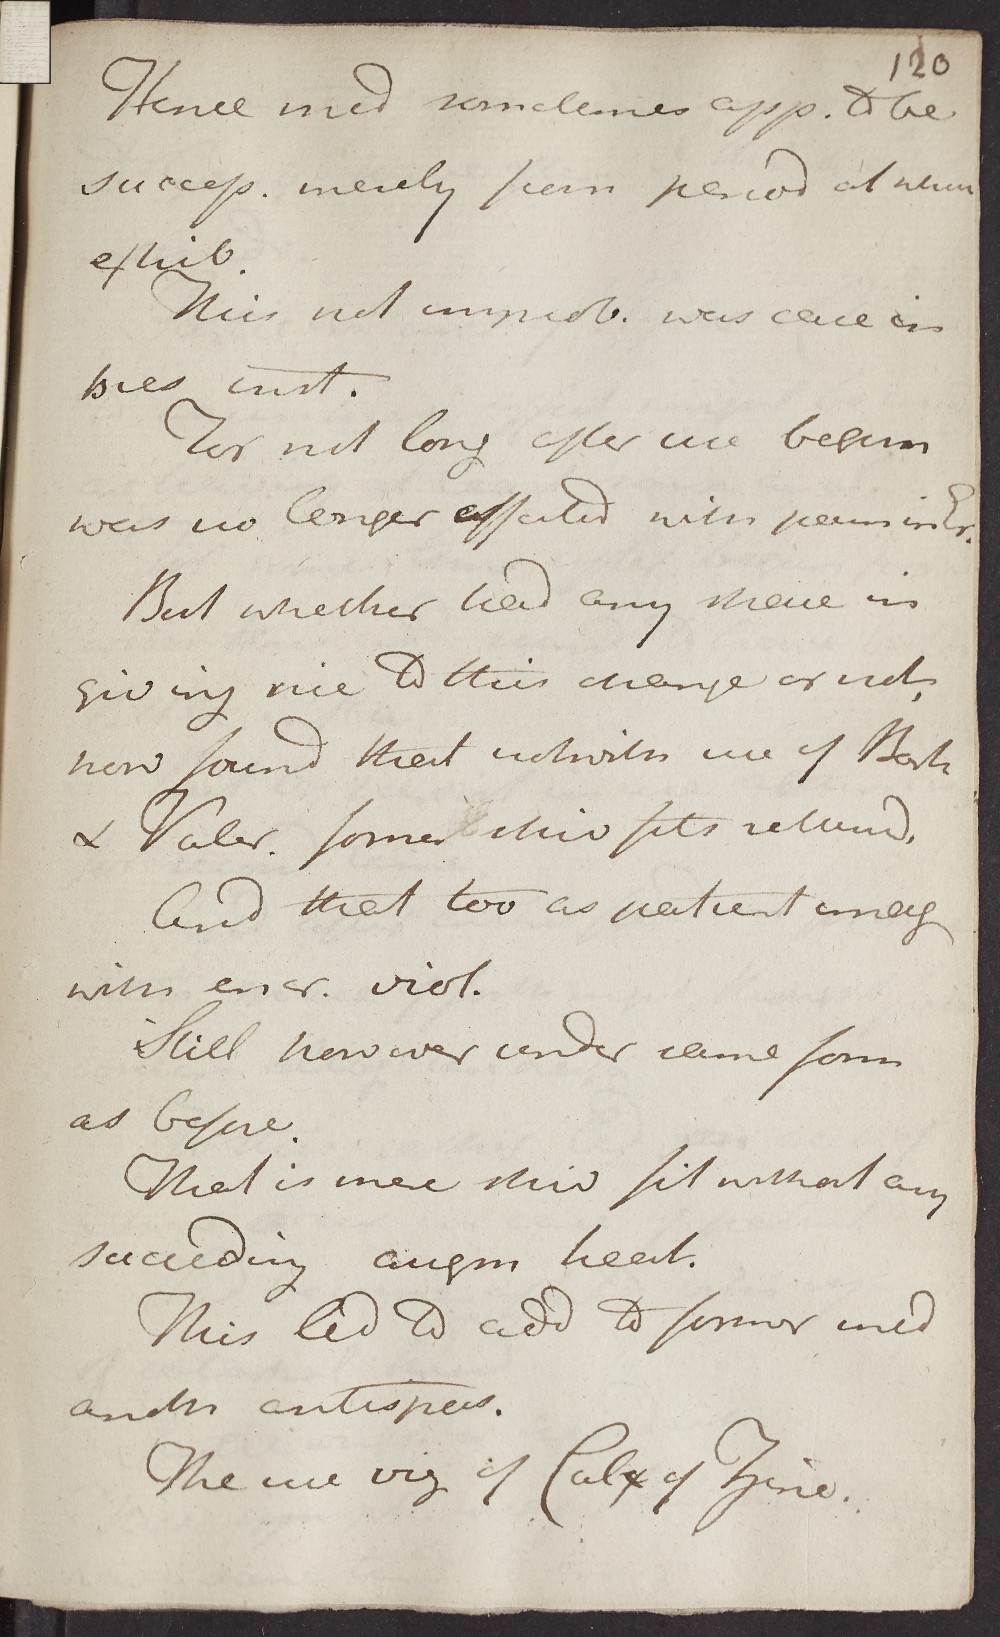 120
Hence med sometimes app. to be
success. merely from period at when
exhib.
This not improb. was case in
pres inst.
For not long after use begun
was no longer affected with pains in Er.
But whether had any share in
giving rise to this change or not,
now found that notwith use of Bark
& Valer. former shiv fits returnd.
And that too as patient imag
with encr. viol.
Still however under same form
as before.
That is mere shiv fit without any
succeeding augm heat.
This led to add to former med
anoth antispas.
The use viz of Calx of Zinc.